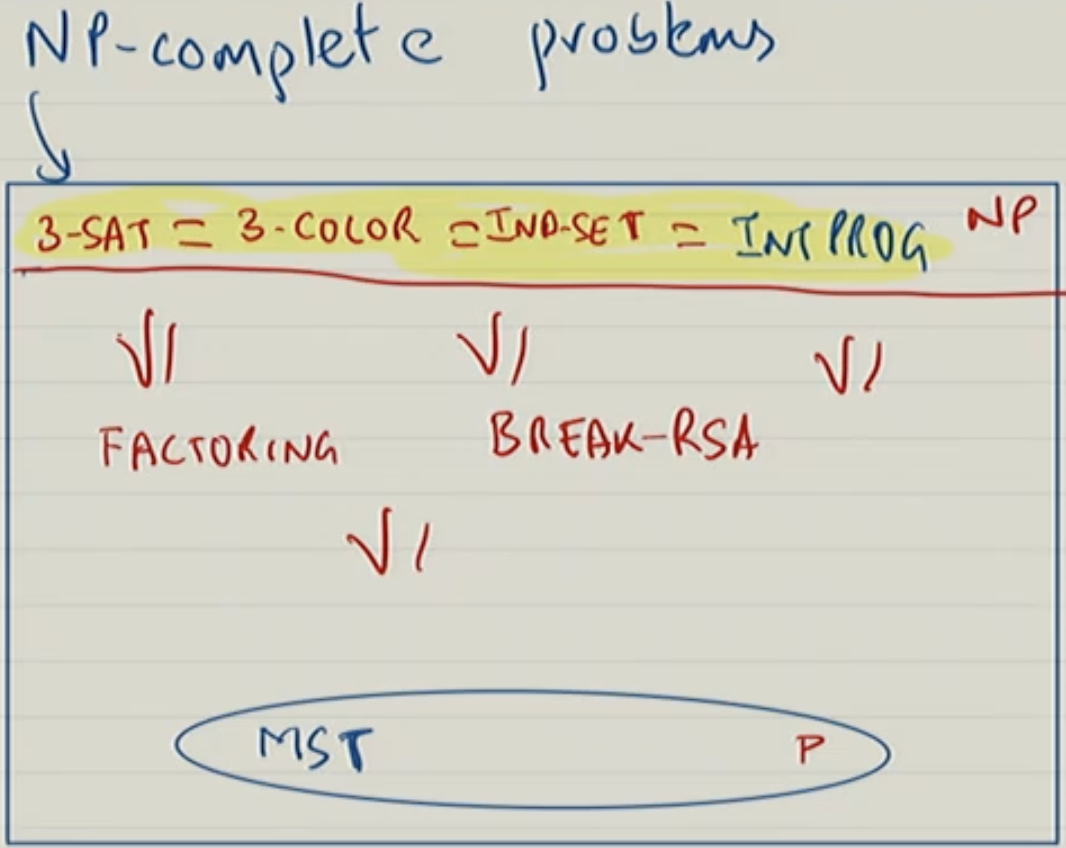 NP-complete problems
3-SAT = 3-COLOR = IND-SET = INTPROG NP
VI VI VI
FACTORING BREAK-RSA
VI
MST P